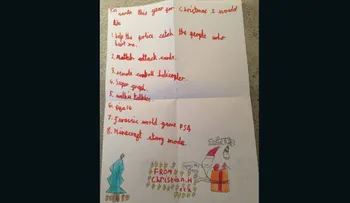 this year for Christmas I would
like
1. help the police catch the people who
hurt me.
2. Match attack cards.
3. remote controll helicopter.
4.
5. walkie talkies.
6.
7. Jurassic world game PS4
8. Minecraft story mode.
FROM
Christian.H